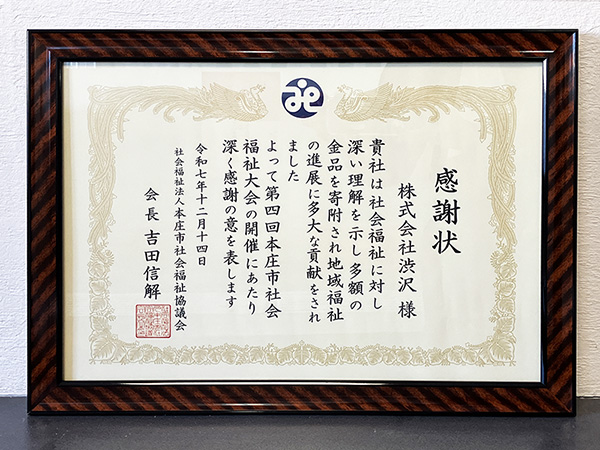 感謝状
株式会社渋沢 様
貴社は社会福祉に対し
深い理解を示し多額の
金品を寄附され地域福祉
の進展に多大な貢献をされ
ました
よって第四回本庄市社会
福祉大会の開催にあたり
深く感謝の意を表します
令和七年十二月十四日
社会福祉法人本庄市社会福祉協議会
会長 吉田信解